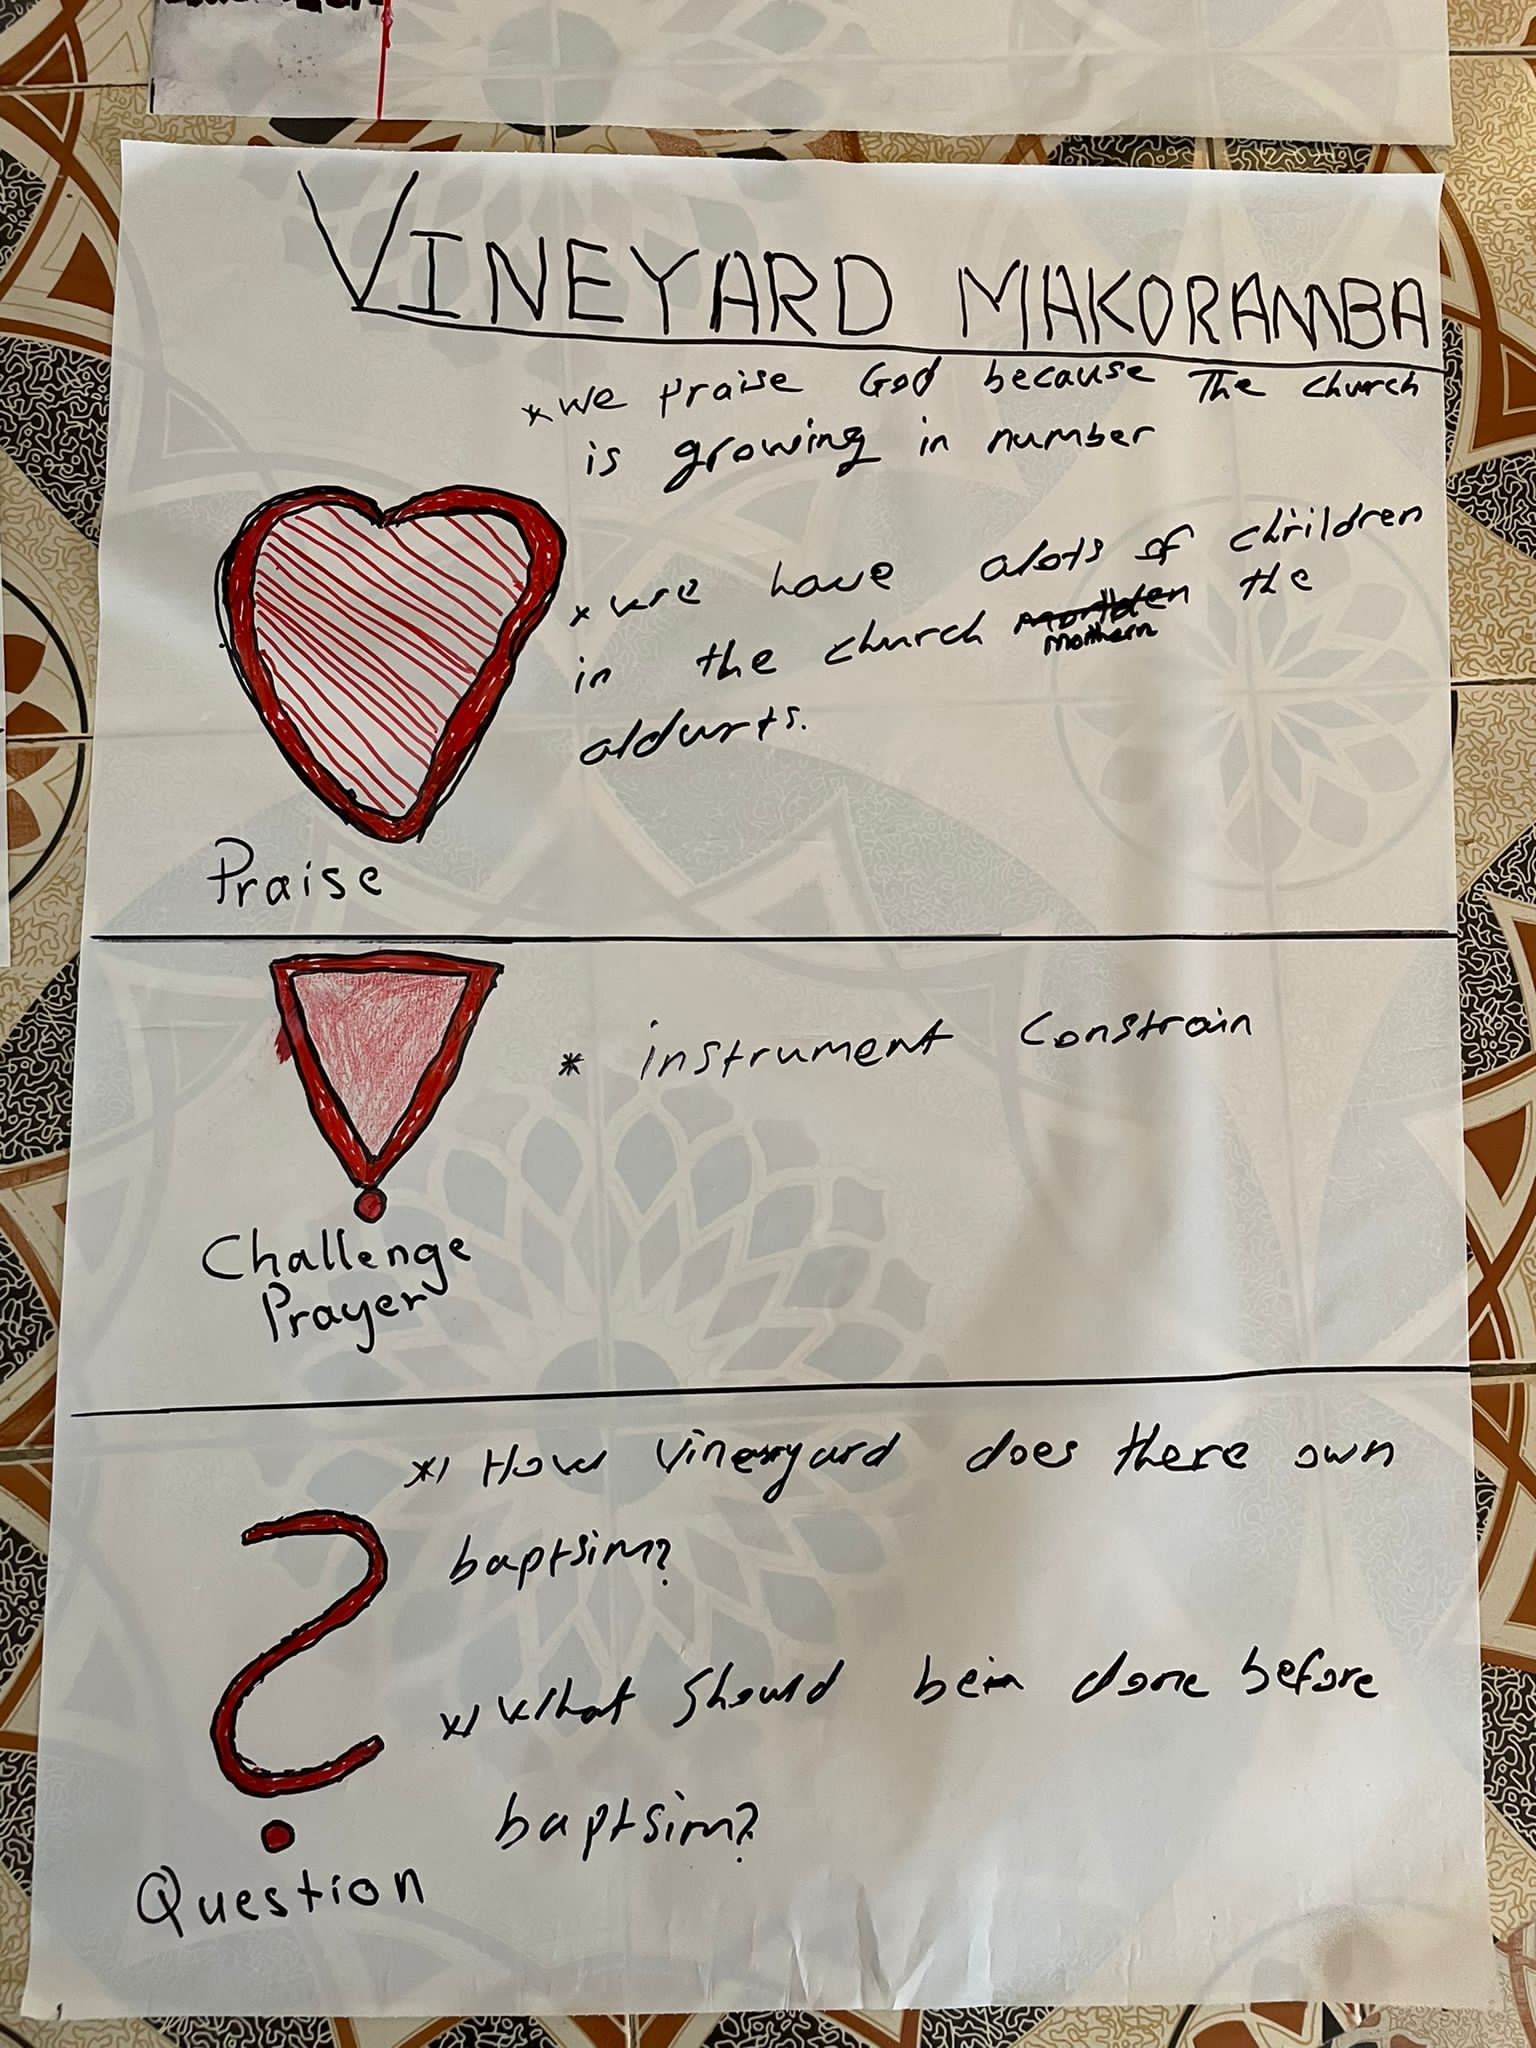 VINEYARD MAKORAMBA
* we praise God because The church
is growing in number
* we have alots of chrildren
in the church morthern the
aldurts.
Praise
* instrument Constrain
Challenge
Prayer
* How Vineyard does there own
baptsim?
* What should bein done before
baptsim?
Question